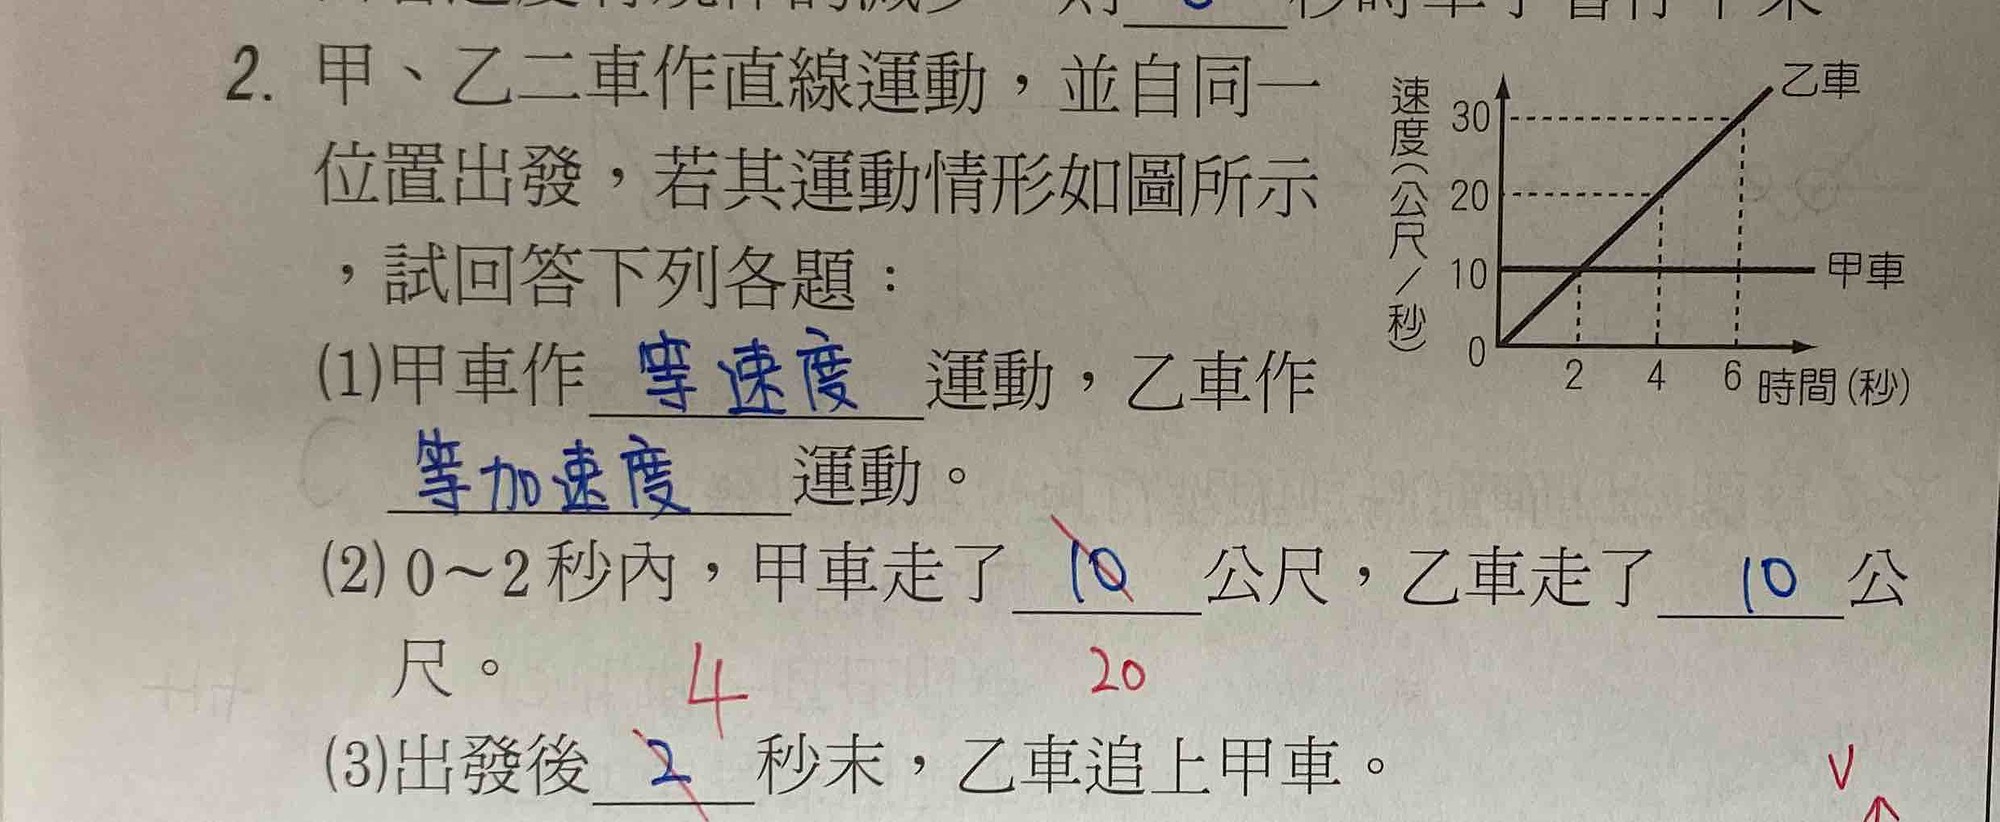 2. 甲、乙二車作直線運動，並自同一
位置出發，若其運動情形如圖所示
，試回答下列各題：
(1)甲車作 等速度 運動，乙車作
等加速度 運動。
(2) 0～2 秒內，甲車走了 10 公尺，乙車走了 10 公
尺。
4 20
(3)出發後 2 秒末，乙車追上甲車。
速度(公尺/秒)
30
20
10
0
2 4 6 時間(秒)
乙車
甲車